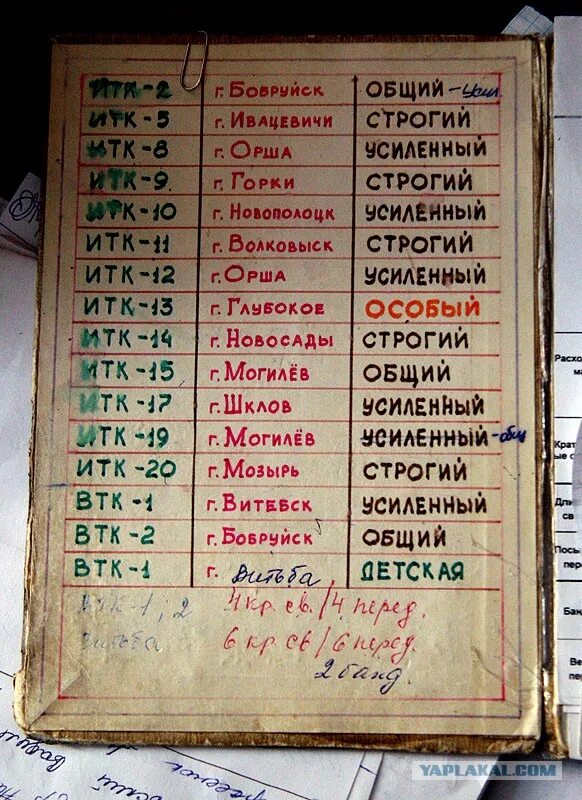 ИТК-2 г. Бобруйск ОБЩИЙ - Усил
ИТК-5 г. Ивацевичи СТРОГИЙ
ИТК-8 г. Орша УСИЛЕННЫЙ
ИТК-9 г. Горки СТРОГИЙ
ИТК-10 г. Новополоцк УСИЛЕННЫЙ
ИТК-11 г. Волковыск СТРОГИЙ
ИТК-12 г. Орша УСИЛЕННЫЙ
ИТК-13 г. Глубокое ОСОБЫЙ
ИТК-14 г. Новосады СТРОГИЙ
ИТК-15 г. Могилёв ОБЩИЙ
ИТК-17 г. Шклов УСИЛЕННЫЙ
ИТК-19 г. Могилёв УСИЛЕННЫЙ - общ
ИТК-20 г. Мозырь СТРОГИЙ
ВТК-1 г. Витебск УСИЛЕННЫЙ
ВТК-2 г. Бобруйск ОБЩИЙ
ВТК-1 г. Витьба ДЕТСКАЯ
ИТК-1, 2 4 кр. св. / 4 перед.
Витьба 6 кр св / 6 перед.
2 банд.
Расхо
Крат
ые с
Дли
св
Посы
пер
Бан
Ве
пе
YAPLAKAL.COM